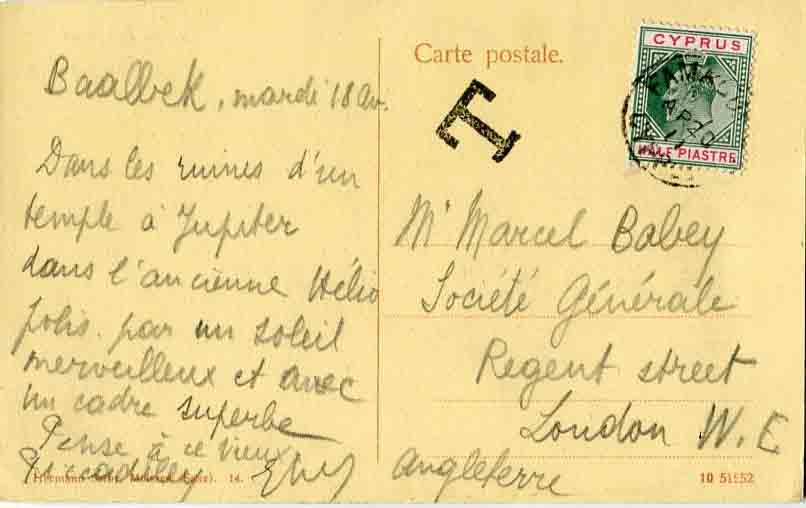 Baalbek, mardi 18 av.
Dans les ruines d'un
temple à Jupiter
dans l'ancienne Hélio
polis. par un soleil
merveilleux et avec
un cadre superbe
Pense à ce vieux
Piccadiley
14.
Carte postale.
T
CYPRUS
HALF PIASTRE
FAMAGU
AP 20
11
Mr Marcel Babey
Société Générale
Regent street
London W. E
Angleterre
10 51552